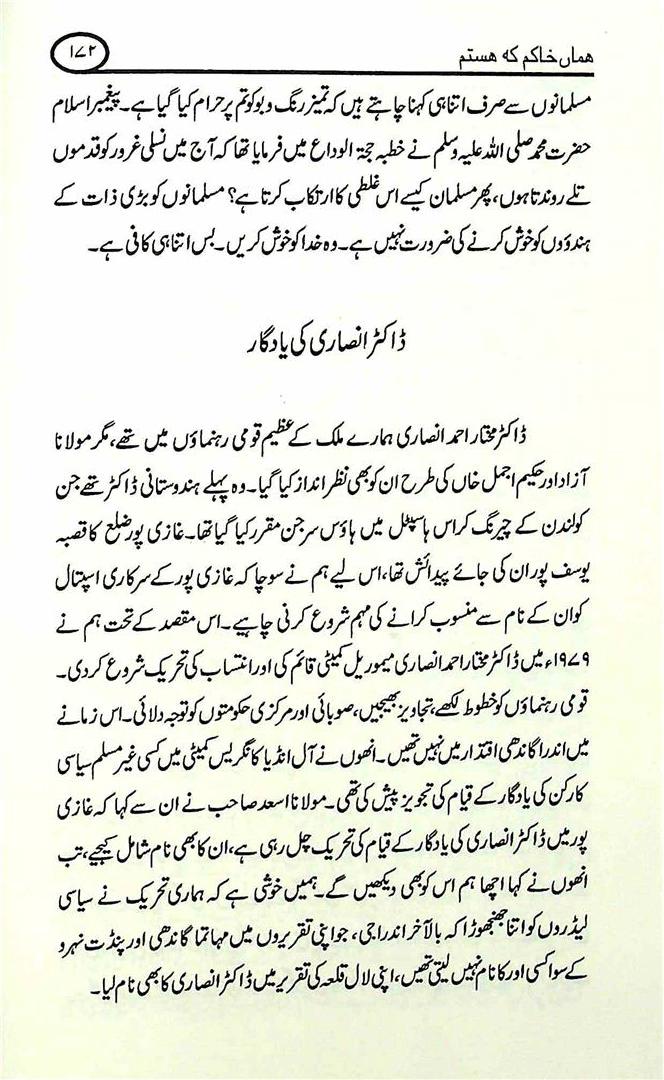 ہماں خاکم کہ ہستم
۱۷۲
مسلمانوں سے صرف اتنا ہی کہنا چاہتے ہیں کہ تمیز رنگ و بو کو تم پر حرام کیا گیا ہے۔ پیغمبر اسلام
حضرت محمد صلی اللہ علیہ وسلم نے خطبہ حجۃ الوداع میں فرمایا تھا کہ آج میں نسلی غرور کو قدموں
تلے روندتا ہوں، پھر مسلمان کیسے اس غلطی کا ارتکاب کرتا ہے؟ مسلمانوں کو بڑی ذات کے
ہندوؤں کو خوش کرنے کی ضرورت نہیں ہے۔ وہ خدا کو خوش کریں۔ بس اتنا ہی کافی ہے۔
ڈاکٹر انصاری کی یادگار
ڈاکٹر مختار احمد انصاری ہمارے ملک کے عظیم قومی رہنماؤں میں تھے، مگر مولانا
آزاد اور حکیم اجمل خاں کی طرح ان کو بھی نظر انداز کیا گیا۔ وہ پہلے ہندوستانی ڈاکٹر تھے جن
کو لندن کے چیرنگ کراس ہاسپٹل میں ہاؤس سرجن مقرر کیا گیا تھا۔ غازی پور ضلع کا قصبہ
یوسف پور ان کی جائے پیدائش تھا، اس لیے ہم نے سوچا کہ غازی پور کے سرکاری اسپتال
کو ان کے نام سے منسوب کرانے کی مہم شروع کرنی چاہیے۔ اس مقصد کے تحت ہم نے
۱۹۷۹ء میں ڈاکٹر مختار احمد انصاری میموریل کمیٹی قائم کی اور انتساب کی تحریک شروع کر دی۔
قومی رہنماؤں کو خطوط لکھے، تجاویز بھیجیں، صوبائی اور مرکزی حکومتوں کو توجہ دلائی۔ اس زمانے
میں اندرا گاندھی اقتدار میں نہیں تھیں۔ انھوں نے آل انڈیا کانگریس کمیٹی میں کسی غیر مسلم سیاسی
کارکن کی یادگار کے قیام کی تجویز پیش کی تھی۔ مولانا اسعد صاحب نے ان سے کہا کہ غازی
پور میں ڈاکٹر انصاری کی یادگار کے قیام کی تحریک چل رہی ہے، ان کا بھی نام شامل کیجیے، تب
انھوں نے کہا اچھا ہم اس کو بھی دیکھیں گے۔ ہمیں خوشی ہے کہ ہماری تحریک نے سیاسی
لیڈروں کو اتنا جھنجھوڑا کہ بالآخر اندرا جی، جو اپنی تقریروں میں مہاتما گاندھی اور پنڈت نہرو
کے سوا کسی اور کا نام نہیں لیتی تھیں، اپنی لال قلعہ کی تقریر میں ڈاکٹر انصاری کا بھی نام لیا۔